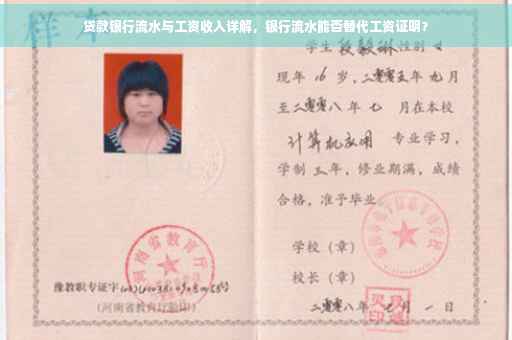 贷款银行流水与工资收入详解，银行流水能否替代工资证明？
样本
学生段毅琳性别女
现年16岁，二零零五年九月
至二零零八年七月在本校
计算机应用 专业学习，
学制三年，修业期满，成绩
合格，准予毕业。
学校（章）
校长（章）
二零零八年七月一日
河南省教育厅
豫教职专证字
（河南省教育厅验印）